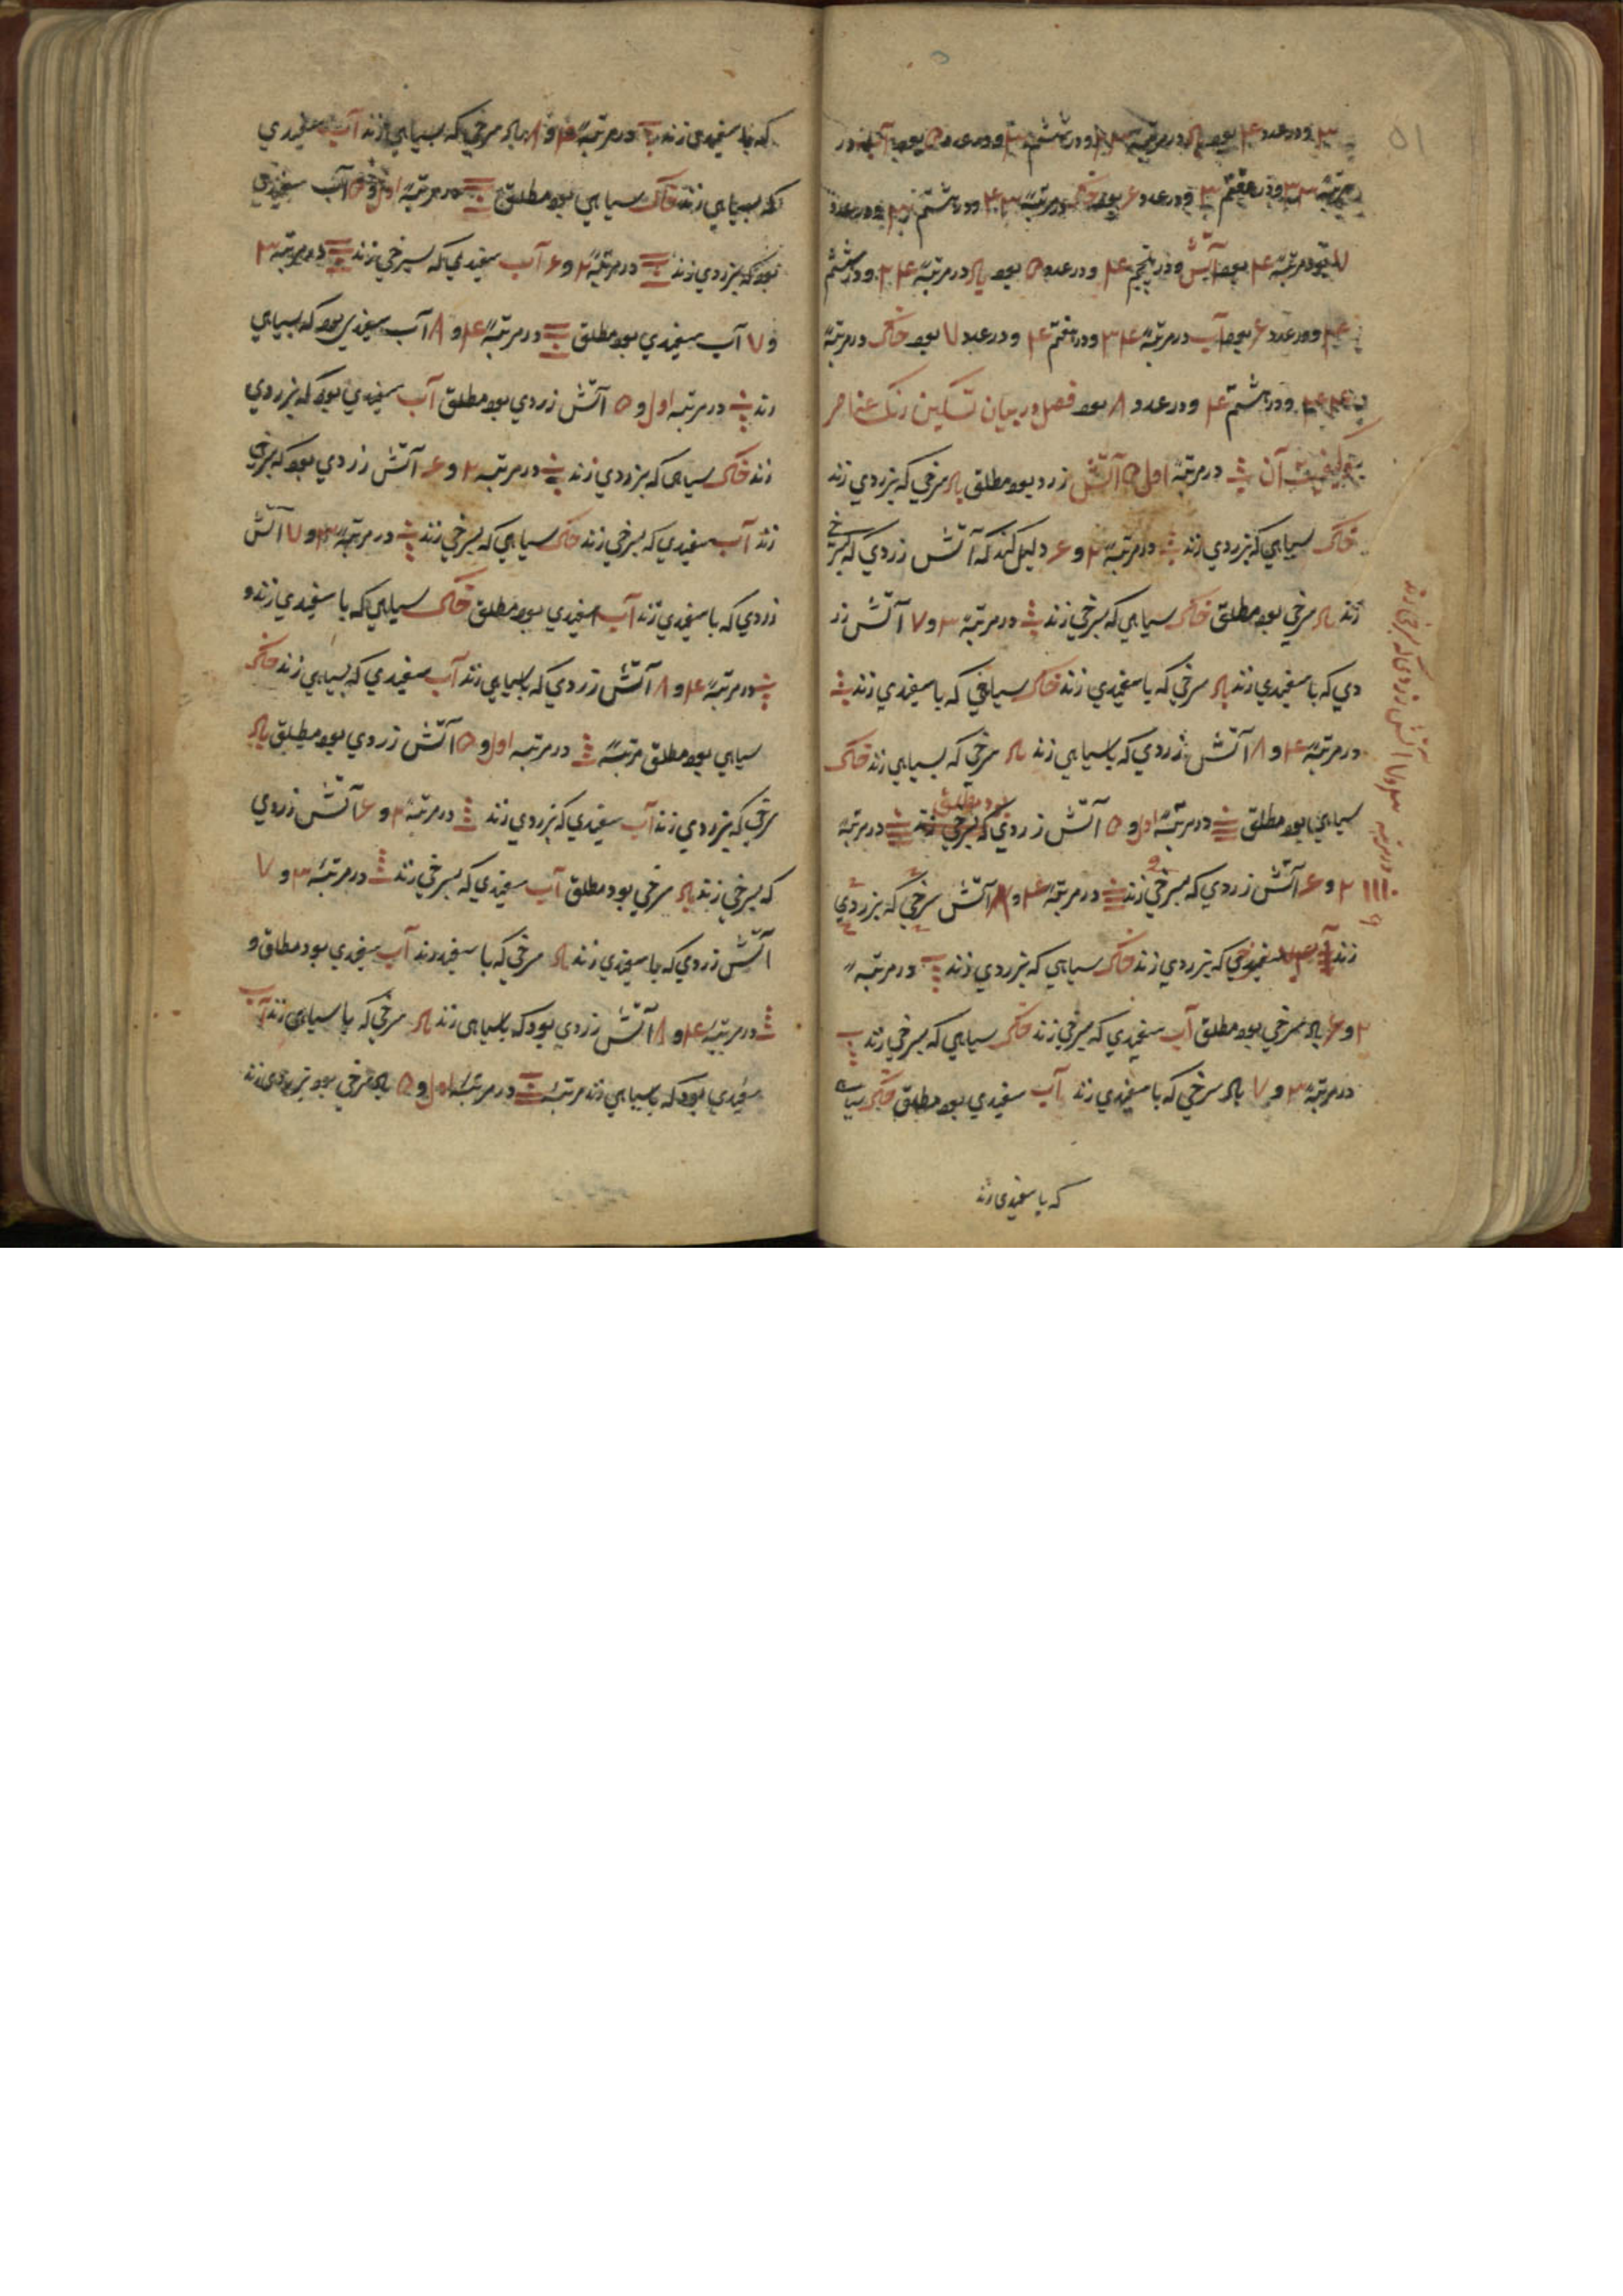 ۳ ودر عدد ۴ بود باد در مرتبهٔ ۳ ۲ ودر ششم ۳ ودر عدد ۵ بود آب در
مرتبهٔ ۳۳ ودر هفتم ۳ ودر عدد ۶ بود خاک در مرتبهٔ ۳ ۴ ودر هشتم ۳ ودر عدد
۷ بود در مرتبهٔ ۴ بود آتش ودر پنجم ۴ ودر عدد ۵ بود باد در مرتبهٔ ۴ ۲ ودر ششم
۴ ودر عدد ۶ بود آب در مرتبهٔ ۴ ۳ ودر هفتم ۴ ودر عدد ۷ بود خاک در مرتبهٔ
۴ ۴ ودر هشتم ۴ ودر عدد ۸ بود فصل در بیان تسکین رنک عناصر
وکیفیت آن در مرتبهٔ اول ۵ آتش زرد بود مطلق باد سرخی که بزردی زند
خاک سیاهی که بزردی زند در مرتبهٔ ۲ و ۶ دلیل کند که آتش زردی که بسرخی
زند باد سرخی بود مطلق خاک سیاهی که بسرخی زند در مرتبهٔ ۳ و ۷ آتش زر
دی که با سفیدی زند باد سرخی که با سفیدی زند خاک سیاهی که با سفیدی زند
در مرتبهٔ ۴ و ۸ آتش زردی که بسیاهی زند باد سرخی که بسیاهی زند خاک
سیاهی بود مطلق در مرتبهٔ اول و ۵ آتش زردی که بسرخی زند در مرتبهٔ
بود مطلق
۲ و ۶ آتش زردی که بسرخی زند در مرتبهٔ ۴ و ۸ آتش سرخی که بزردی
زند آب سفیدی که بزردی زند خاک سیاهی که بزردی زند در مرتبهٔ
۲ و ۶ باد سرخی بود مطلق آب سفیدی که بسرخی زند خاک سیاهی که بسرخی زند
در مرتبهٔ ۳ و ۷ باد سرخی که با سفیدی زند آب سفیدی بود مطلق خاک سیاه
که با سفیدی زند
در مرتبه آتش زردی که بسرخی زند
که با سفیدی زند در مرتبهٔ ۴ و ۸ باد سرخی که بسیاهی زند آب سفیدی
که بسیاهی زند خاک سیاهی بود مطلق در مرتبهٔ اول و ۵ آب سفیدی
بود که بزردی زند در مرتبهٔ ۲ و ۶ آب سفیدی که بسرخی زند در مرتبهٔ ۳
و ۷ آب سفیدی بود مطلق در مرتبهٔ ۴ و ۸ آب سفیدی بود که بسیاهی
زند در مرتبه اول و ۵ آتش زردی بود مطلق آب سفیدی بود که بزردی
زند خاک سیاهی که بزردی زند در مرتبه ۲ و ۶ آتش زردی بود که بسرخی
زند آب سفیدی که بسرخی زند خاک سیاهی که بسرخی زند در مرتبهٔ ۳ و ۷ آتش
زردی که با سفیدی زند آب سفیدی بود مطلق خاک سیاهی که با سفیدی زند و
در مرتبهٔ ۴ و ۸ آتش زردی که بسیاهی زند آب سفیدی که بسیاهی زند خاک
سیاهی بود مطلق مرتبهٔ در مرتبه اول و ۵ آتش زردی بود مطلق باد
سرخی که بزردی زند آب سفیدی که بزردی زند در مرتبهٔ ۲ و ۶ آتش زردی
که بسرخی زند باد سرخی بود مطلق آب سفیدی که بسرخی زند در مرتبهٔ ۳ و ۷
آتش زردی که با سفیدی زند باد سرخی که با سفید زند آب سفیدی بود مطلق و
در مرتبهٔ ۴ و ۸ آتش زردی بود که بسیاهی زند باد سرخی که با سیاهی زند آب
سفیدی بود که بسیاهی زند مرتبهٔ در مرتبهٔ اول و ۵ باد سرخی بود بزردی زند